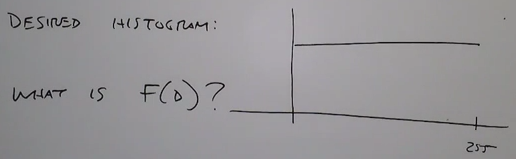 DESIRED HISTOGRAM:
WHAT IS F(D)?
255